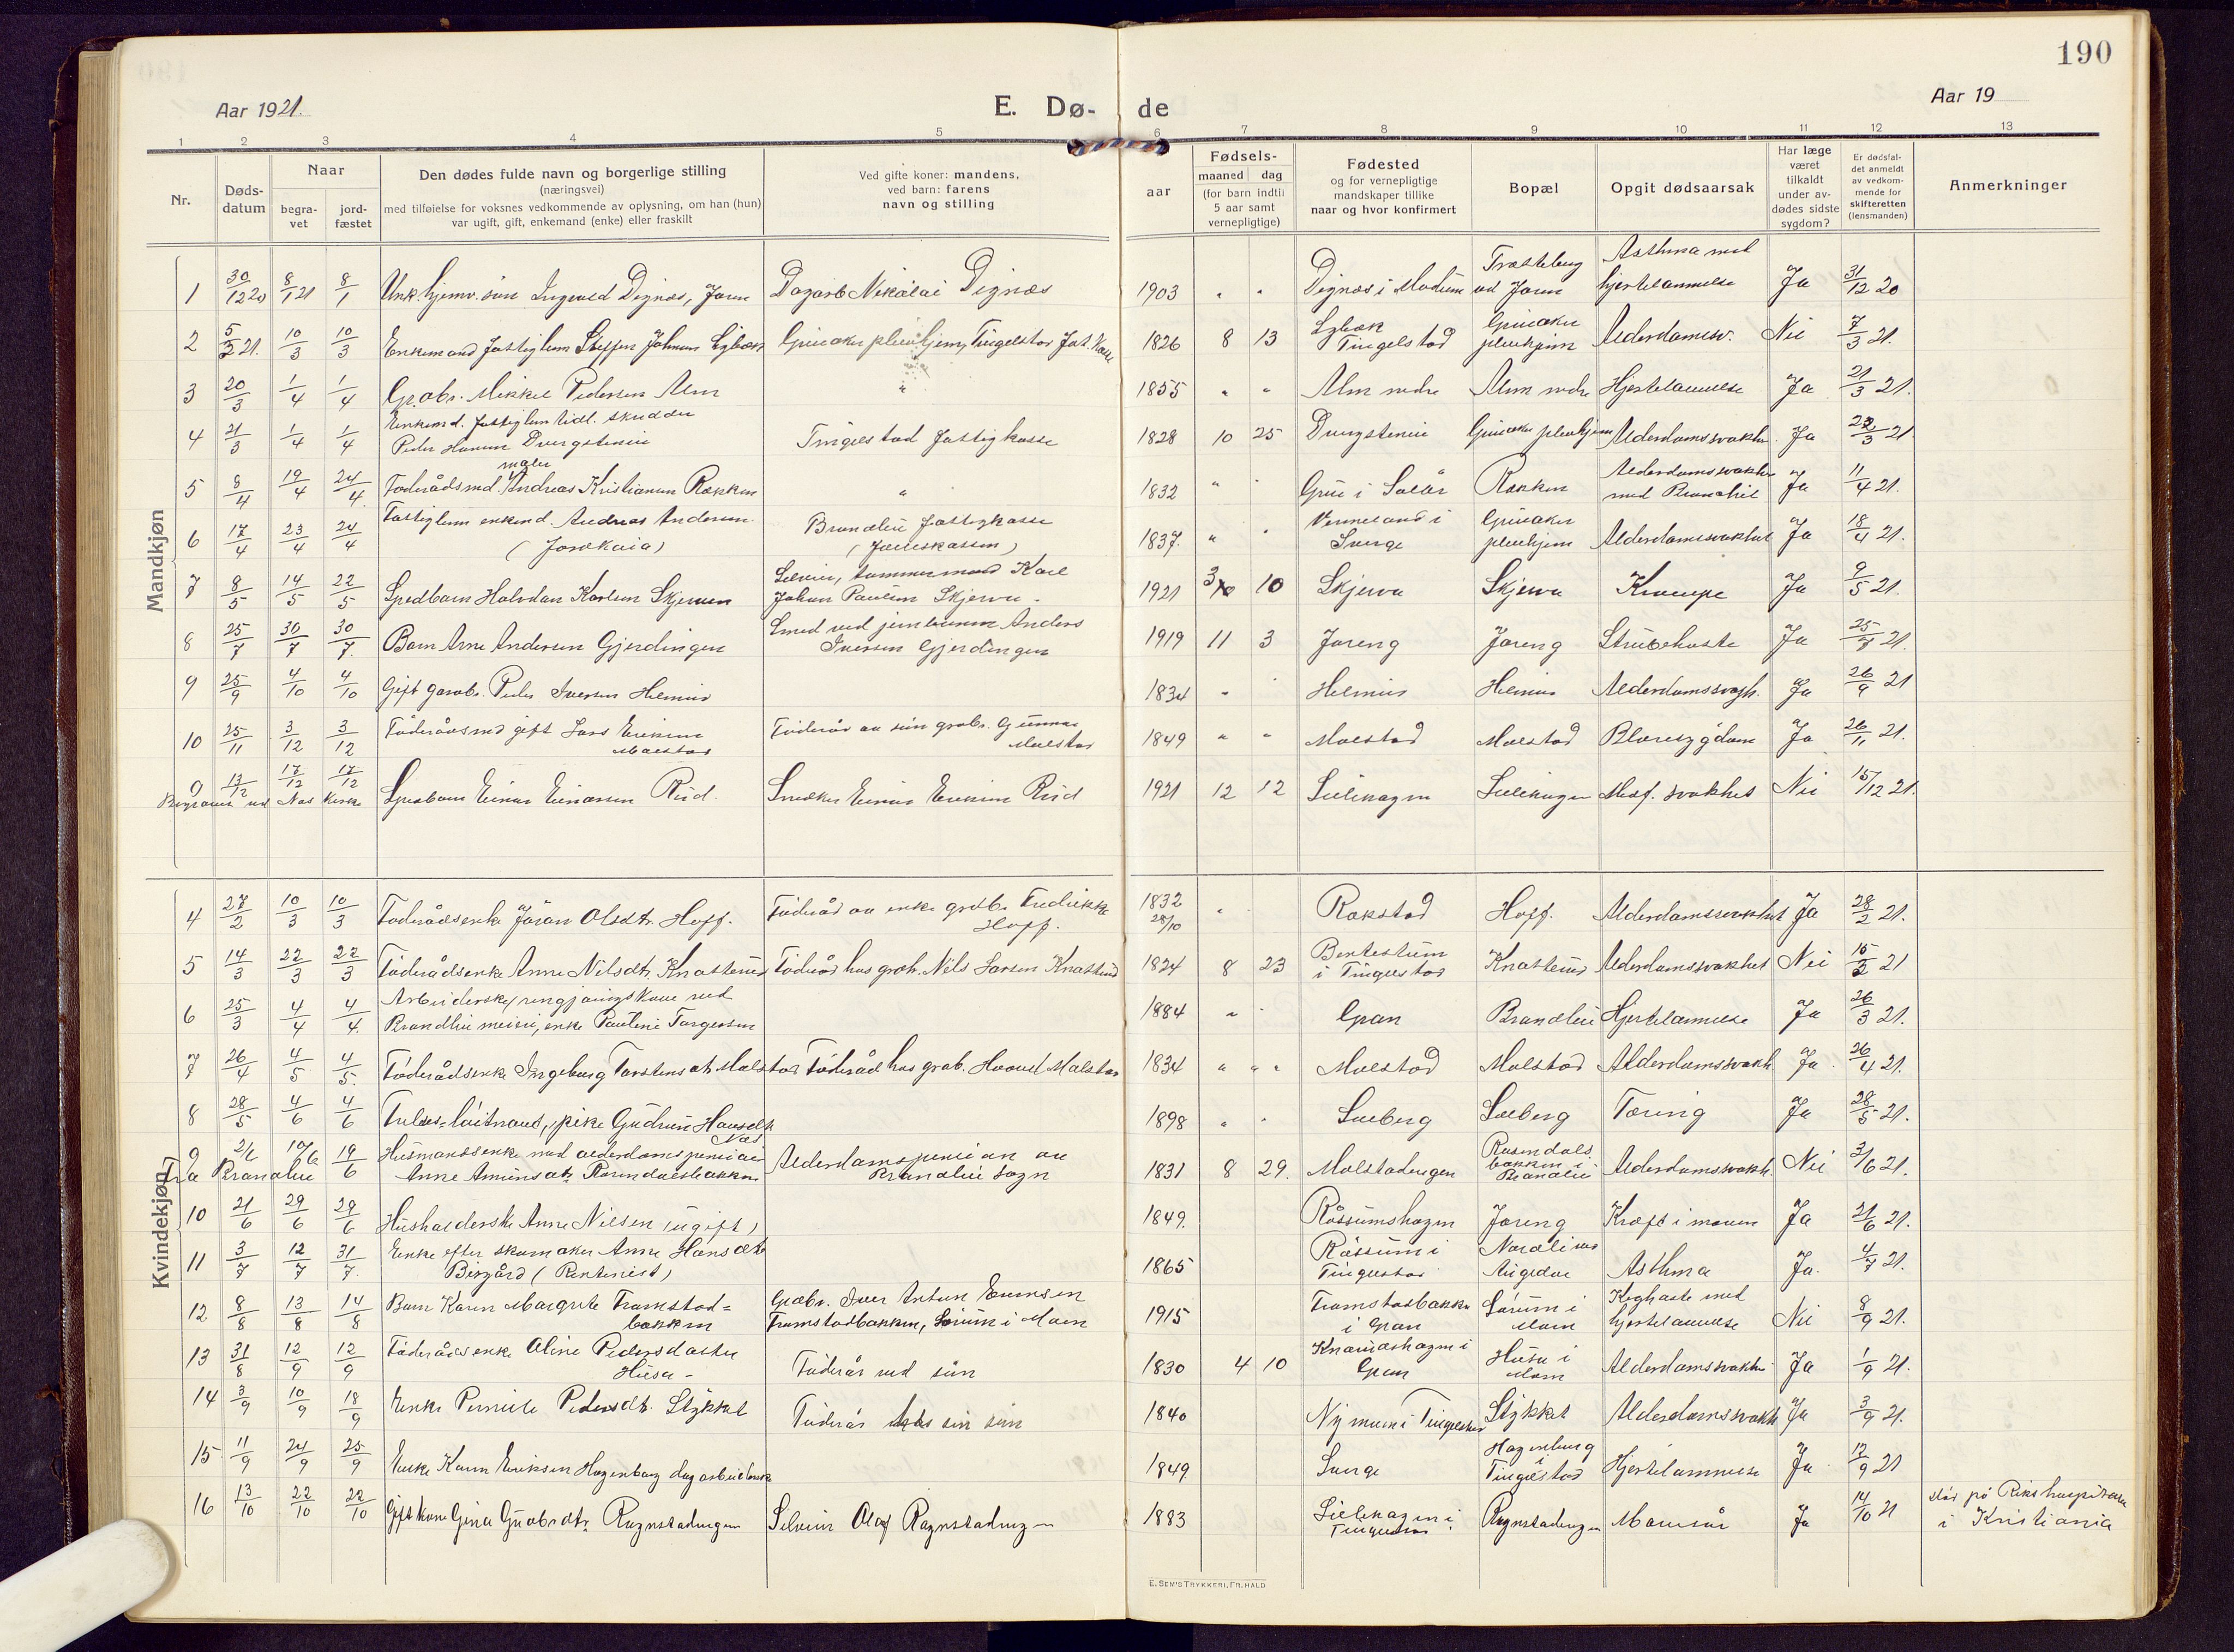 190
Aar 1921.
E. Dø- de
Aar 19
1 2 3 4 5 6 7 8 9 10 11 12 13
Nr.
Døds-
datum
Naar
begra-
vet
jord-
fæstet
Den dødes fulde navn og borgerlige stilling
(næringsvei)
med tilføielse for voksnes vedkommende av oplysning, om han (hun)
var ugift, gift, enkemand (enke) eller fraskilt
Ved gifte koner: mandens,
ved barn: farens
navn og stilling
aar
Fødsels-
maaned dag
(for barn indtil
5 aar samt
vernepligtige)
Fødested
og for vernepligtige
mandskaper tillike
naar og hvor konfirmert
Bopæl
Opgit dødsaarsak
Har læge
været
tilkaldt
under av-
dødes sidste
sygdom?
Er dødsfal-
det anmeldt
av vedkom-
mende for
skifteretten
(lensmanden)
Anmerkninger
Mandkjøn
1 30/12 20 8/1 21 8/1 Ungk. hjemv. søn Ingvald Dignæs, Jaren Dagarb. Nikolai Dignæs 1903 " " Dignæs i Modum Jaren Asthma med hjertelammelse Ja 31/12 20
2 5/3 21. 10/3 10/3 Enkemand fattiglem Steffen Johansen Grinaker pleiehjem, Tingelstad 1826 8 13 Tingelstad Grinaker pleiehjem Alderdomssv. Nei 7/3 21.
3 20/3 1/4 1/4 Grdbr. Mikkel Pedersen Alm " 1855 " " Alm nedre Alm nedre Hjertelammelse Ja 21/3 21.
4 21/3 1/4 1/4 Enkemd. fattiglem tidl. skrædder
Peder Hansen Dvergsteneie Tingelstad fattigkasse 1828 10 25 Dvergsteneie Grinaker pleiehjem Alderdomssvakh. Ja 22/3 21
5 8/4 19/4 24/4. Føderådsmd. maler Andreas Kristiansen Røkken " 1832 " " Grue i Solør Røkken Alderdomssvakh.
med Bronchit Ja 11/4 21.
6 17/4 23/4 24/4 Fattiglem enkemd. Andreas Andersen
Brandbu fattigkasse 1837. " " Vermeland i
Sverge Grinaker
pleiehjem Alderdomssvakhet Ja 18/4 21.
7 8/5 14/5 22/5 Spedbarn Halvdan Karlsen Skjerven Selveier, tømmermand Karl
Johan Paulsen Skjerva 1921 3 10 Skjerva Skjerva Krampe Ja 9/5 21.
8 25/7 30/7 30/7. Barn Arne Andersen Gjerdingen Smed ved jernbanen Anders
Iversen Gjerdingen 1919 11 3 Jareng Jareng Strubehoste Ja 25/7 21.
9 25/9 4/10 4/10 Gift gardbr. Peder Iversen Helmeid 1834 " " Alderdomssvagh. Ja 26/9 21
10 25/11 3/12 3/12 Føderådsmd gift Lars Eriksen
Molstad Føderåd av søn grdbr. Gunnar
Molstad 1849 " " Molstad Molstad Blæresygdom Ja 26/11 21.
9 13/12 17/12 17/12 Spedbarn Einar Einarsen Rud. Snedker Einar Eriksen Rud 1921 12 12 Medf. svakhet Nei 15/12 21.
Begravet ved Næs kirke
Kvindekjøn
4 27/2 10/3 10/3 Føderådsenke Jøran Olsdtr. Hoff. Føderåd av enke grdb. Fredrikke
Hoff. 1832
28/10 " Rækstad Hoff. Alderdomssvakhet Ja 28/2 21.
5 14/3 22/3 22/3 Føderådsenke Anne Nilsdtr. Knasterud Føderåd hos grdb. Nils Larsen Knasterud 1824 8 23 Bentestuen
i Tingelstad Knasterud Alderdomssvakhet Nei 15/3 21
6 25/3 4/4 4/4. Arbeiderske, rengjøringskone ved
Brandbu meieri, enke Pauline Torgersen 1884 " " Gran Brandbu Hjertelammelse Ja 26/3 21.
7 26/4 4/5 4/5. Føderådsenke Ingeborg Torstensdtr. Molstad Føderåd hos grdb. Haavel Molstad 1834 " " " Molstad Molstad Alderdomssvakh. Ja 26/4 21.
8 28/5 4/6 4/6 Frelses-løitnant, pike Gudrun Hansdtr.
Næs 1898 " " Solberg Solberg Tæring Ja 28/5 21.
9 2/6 10/6 19/6 Husmandsenke med alderdomspension
Anne Amundsdtr. Rosendalsbakken Alderdomspension av
Brandbu sogn 1831 8 29. Molstadengen Rosendals-
bakken i
Brandbu Alderdomssvakh. Nei 2/6 21.
fra Brandbu
10 21/6 29/6 29/6 Husholderske Anne Nielsen (ugift) 1849. Røssumshagen Jareng Kræft i maven Ja 21/6 21.
11 3/7 12/7 31/7. Enke efter skomaker Anne Hansdtr.
Bisgård (Rentenist) 1865 Røssum i
Tingelstad Nordli ved
Augedal Asthma Ja. 4/7 21.
12 8/8 13/8 14/8 Barn Karen Margrete Framstad=
bakken Grdbr. Iver Anton Evensen
Framstadbakken, Sørum i Moen 1915 Framstadbakken
i Gran Sørum i
Moen Kighoste med
hjertelammelse Nei 8/9 21.
13 31/8 12/9 12/9 Føderådsenke Oline Pedersdatter
Husa - Føderåd ved søn 1830 4 10 Gran Husa i
Moen Alderdomssvakh. Ja 1/9 21.
14 3/9 10/9 18/9 Enke Pernille Pedersdt. Stykket Føderåd hos sin søn 1840 Nymoen i Tingelstad Stykket Alderdomssvakh. Ja 3/9 21.
15 11/9 24/9 25/9 Enke Karen Eriksen Hagenborg dagarbeiderske 1849. Sverge Hagenborg
i
Tingelstad Hjertelammelse Ja 12/9 21
16 13/10 22/10 22/10 Gift kone Gina Gulbrdtr. Rognstadengen Selveier Olaf Rognstadengen 1883 Tingelstad Rognstadengen Mavesår Ja 14/10 21 død på Rikshospitalet
i Kristiania
E. SEM'S TRYKKERI, FR.HALD